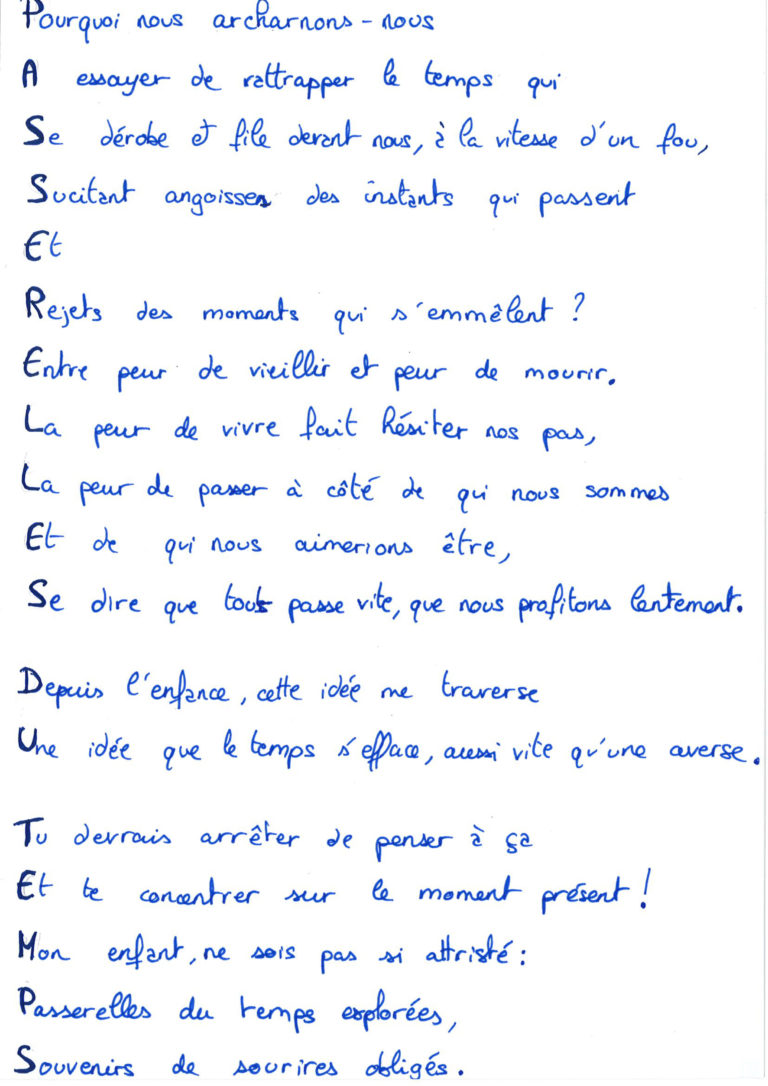 Pourquoi nous archarnons-nous
A essayer de rattrapper le temps qui
Se dérobe et file devant nous, à la vitesse d'un fou,
Sucitant angoisses des instants qui passent
Et
Rejets des moments qui s'emmêlent ?
Entre peur de vieillir et peur de mourir.
La peur de vivre fait hésiter nos pas,
La peur de passer à côté de qui nous sommes
Et de qui nous aimerions être,
Se dire que tout passe vite, que nous profitons lentement.
Depuis l'enfance, cette idée me traverse
Une idée que le temps s'efface, aussi vite qu'une averse.
Tu devrais arrêter de penser à ça
Et te concentrer sur le moment présent !
Mon enfant, ne sois pas si attristé :
Passerelles du temps explorées,
Souvenirs de sourires obligés.